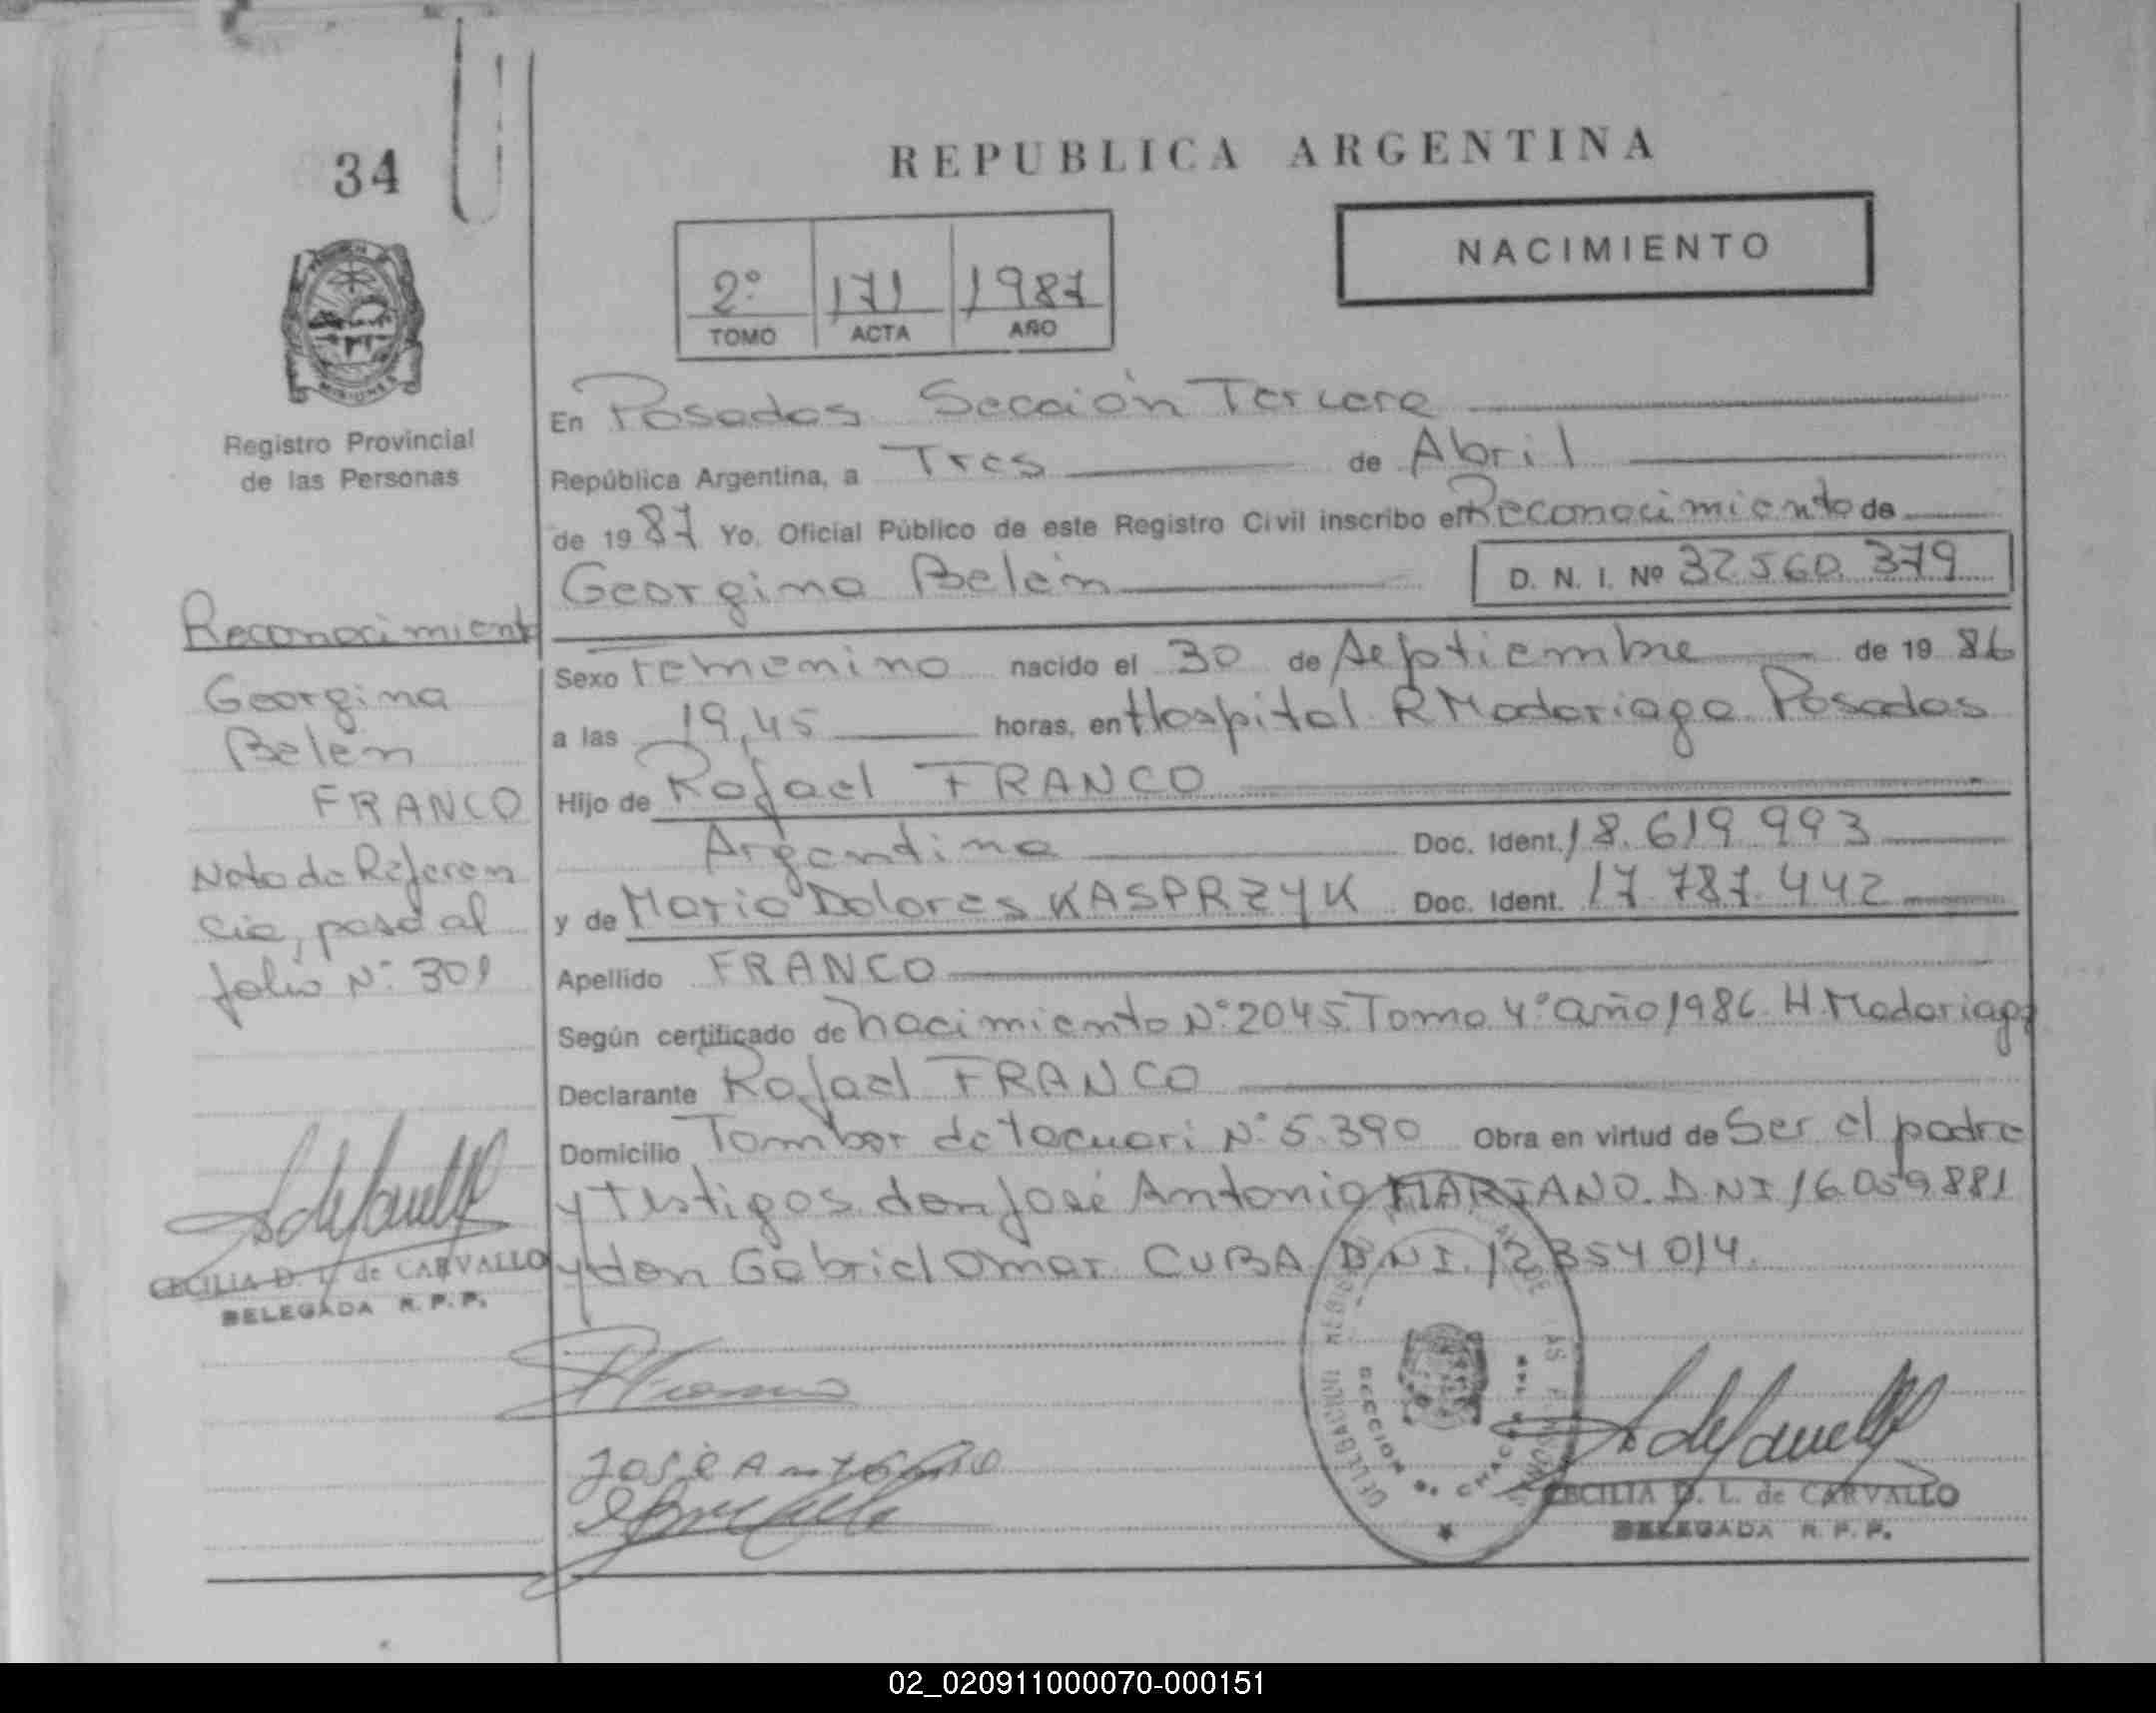 34
REPUBLICA ARGENTINA
NACIMIENTO
2º 171 1987
TOMO ACTA AÑO
Registro Provincial
de las Personas
En Posadas Sección Tercera
República Argentina, a Tres de Abril
de 1987 Yo, Oficial Público de este Registro Civil inscribo el Reconocimiento de
Georgina Belén D. N. I. Nº 32.560.379
Sexo Femenino nacido el 30 de Septiembre de 1986
a las 19,45 horas, en Hospital R Madariaga Posadas
Hijo de Rafael FRANCO
Argentina Doc. Ident. 18.619.993
y de Maria Dolores KASPRZYK Doc. Ident. 17.787.442
Apellido FRANCO
Según certificado de nacimiento Nº 2045 Tomo 4º año 1986 H. Madariaga
Declarante Rafael FRANCO
Domicilio Tambor de tacuari Nº 5.390 Obra en virtud de Ser el padre
y testigos don José Antonio MARIANO. DNI 16.059.881
y don Gabriel Omar CUBA DNI. 12.354.014.
Reconocimiento
Georgina
Belén
FRANCO
Nota de Referen
cia, pasa al
folio Nº 301
CECILIA D. L. de CARVALLO
DELEGADA R. P. P.
José Antonio
CECILIA D. L. de CARVALLO
DELEGADA R. P. P.
02_020911000070-000151